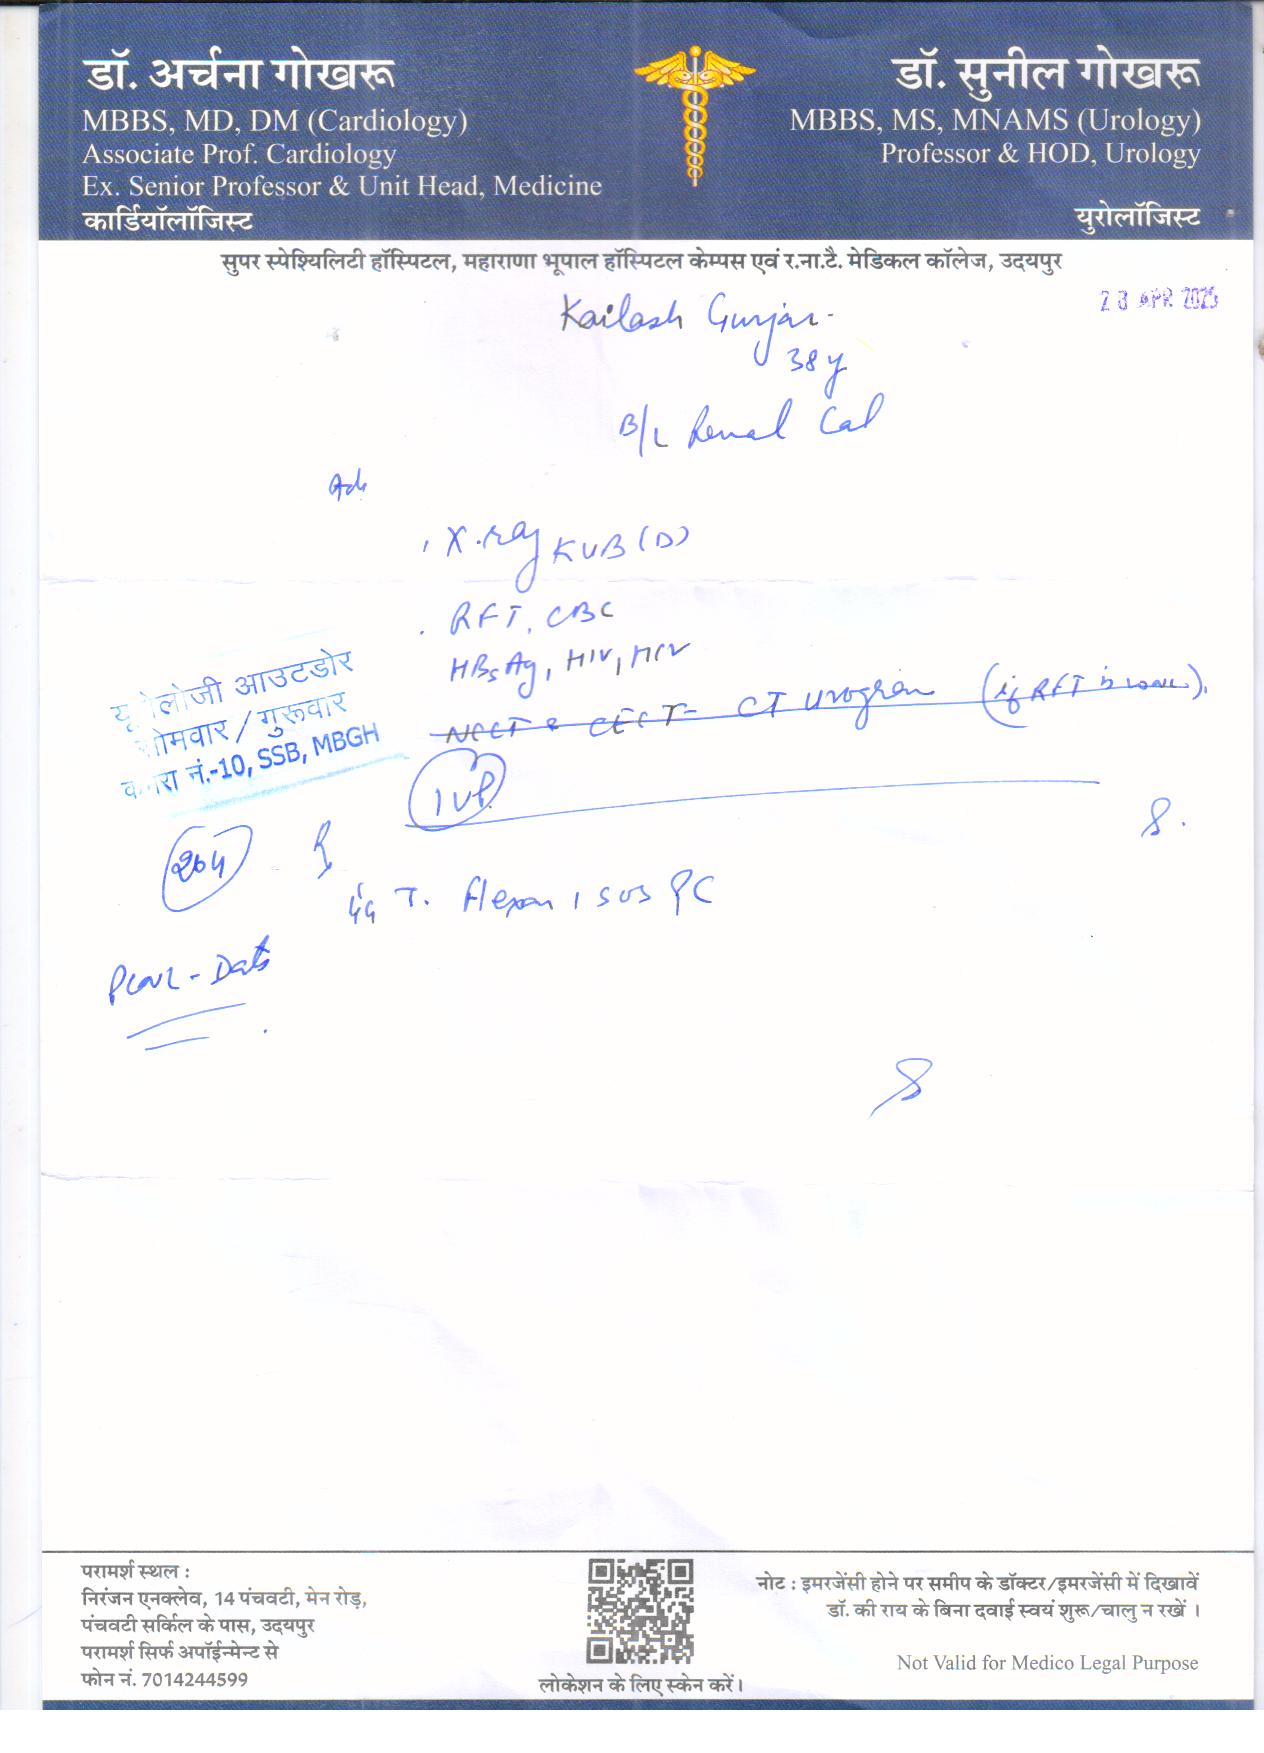 डॉ. अर्चना गोखरू
MBBS, MD, DM (Cardiology)
Associate Prof. Cardiology
Ex. Senior Professor & Unit Head, Medicine
कार्डियॉलॉजिस्ट
डॉ. सुनील गोखरू
MBBS, MS, MNAMS (Urology)
Professor & HOD, Urology
युरोलॉजिस्ट
सुपर स्पेश्यिलिटी हॉस्पिटल, महाराणा भूपाल हॉस्पिटल केम्पस एवं र.ना.टै. मेडिकल कॉलेज, उदयपुर
APR 2025
Kailash Gurjar
38 y
B/L Renal Cal
Adv
X-ray KUB (D)
RFT, CBC
HBsAg, HIV, HCV
NCCT & CECT - CT Urogram (if RFT is
IVP
आउटडोर
/ गुरूवार
नं.-10, SSB, MBGH
264
T. Flexon 1 SOS PC
परामर्श स्थल :
निरंजन एनक्लेव, 14 पंचवटी, मेन रोड़,
पंचवटी सर्किल के पास, उदयपुर
परामर्श सिर्फ अपॉईन्मेन्ट से
फोन नं. 7014244599
लोकेशन के लिए स्केन करें।
नोट : इमरजेंसी होने पर समीप के डॉक्टर/इमरजेंसी में दिखावें
डॉ. की राय के बिना दवाई स्वयं शुरू/चालु न रखें ।
Not Valid for Medico Legal Purpose